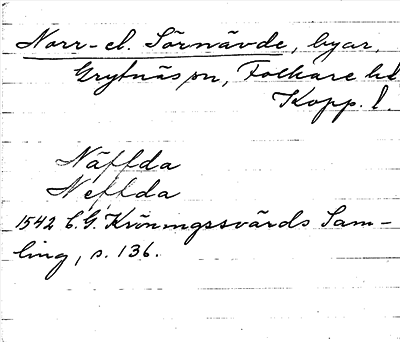 Norr- el. Sörnävde, byar,
Grytnäs sn, Folkare hd
Kopp. l.
Näffda
Neffda
1542 C.G. Kröningssvärds Sam-
ling, s. 136.